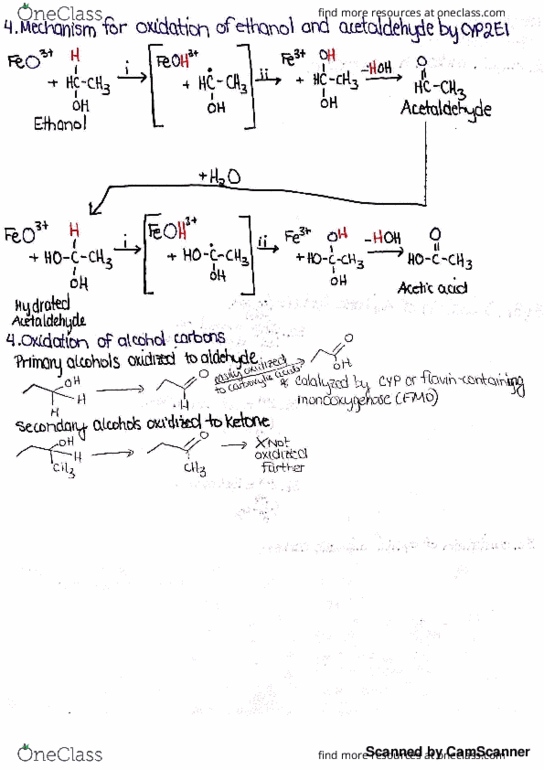 OneClass
find more resources at oneclass.com
4.Mechanism for oxidation of ethanol and acetaldehyde by CYP2E1
FeO³⁺ H i FeOH³⁺ ii Fe³⁺ OH -HOH O
+ HC-CH₃ + HĊ-CH₃ + HC-CH₃ HC-CH₃
OH OH OH Acetaldehyde
Ethanol
+H₂O
FeO³⁺ H i FeOH³⁺ ii Fe³⁺ OH -HOH O
+ HO-C-CH₃ + HO-Ċ-CH₃ +HO-C-CH₃ HO-C-CH₃
OH OH OH Acetic acid
Hydrated
Acetaldehyde
4.Oxidation of alcohol carbons
Primary alcohols oxidized to aldehyde
OH H H
O H
easily oxidized
to carboxylic acids
O OH
* catalyzed by CYP or flavin-containing
monooxygenase (FMO)
Secondary alcohols oxidized to ketone
OH H CH₃
O CH₃
X Not
oxidized
further
OneClass
find more resources at oneclass.com
Scanned by CamScanner